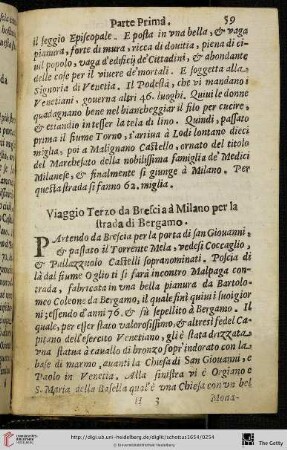 Parte Prima. 59
il seggio Episcopale. E posta in vna bella, & vaga
pianura, forte di mura, ricca di douitia, piena di ci-
uil popolo, vaga d'edificij de' Cittadini, & abondante
delle cose per il viuere de' mortali. E soggetta alla
Signoria di Venetia. Il Podestà, che vi mandano i
Venetiani, gouerna altri 46. luoghi. Quiui le donne
guadagnano bene nel biancheggiar il filo per cucire,
& etiandio in tesser la tela di lino. Quindi, passato
prima il fiume Torno, s'arriua à Lodi lontano dieci
miglia, poi a Malignano Castello, ornato del titolo
del Marchesato della nobilissima famiglia de' Medici
Milanese, & finalmente si giunge à Milano. Per
questa strada si fanno 62. miglia.
Viaggio Terzo da Brescia à Milano per la
strada di Bergamo.
PArtendo da Brescia per la porta di san Giouanni,
& passato il Torrente Mela, vedesi Coccaglio,
& Pallazzuolo Castelli sopranominati. Poscia di
là dal fiume Oglio ti si farà incontro Malpaga con-
trada, fabricata in vna bella pianura da Bartolo-
meo Coleone da Bergamo, il quale finì quiui i suoi gior
ni; essendo d'anni 76. & fù sepellito à Bergamo. Il
quale, per esser stato valorosissimo, & altresi fedel Ca-
pitano dell'esercito Venetiano, gli è stata drizzata
vna statua à cauallo di bronzo sopr'indorato con la
base di marmo, auanti la Chiesa di San Giouanni, e
Paolo in Venetia. Alla sinistra vi è Orgiano e
S. Maria della Basella qual'è vna Chiesa con vn bel
H 3 Mona-
http://digi.ub.uni-heidelberg.de/diglit/schottus1654/0254
© Universitätsbibliothek Heidelberg
The Getty